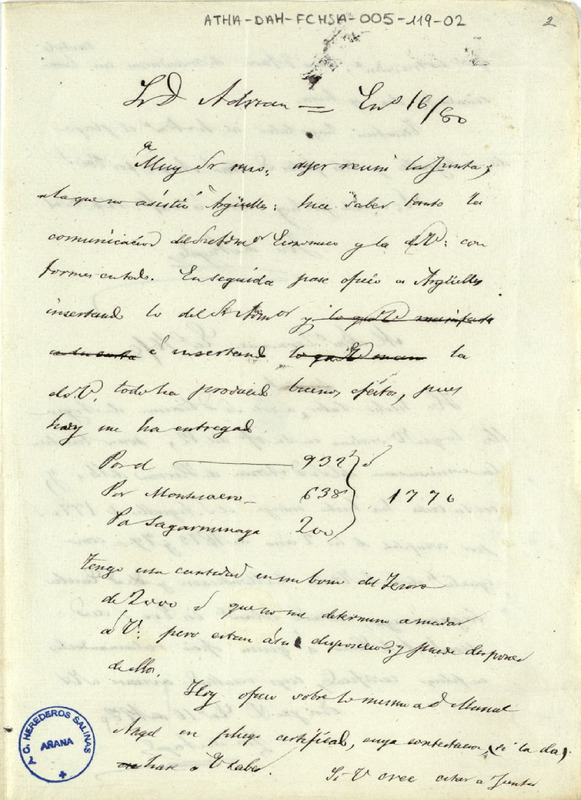 ATHA-DAH-FCHSA-005-119-02
2
Sr D Adrian = En.º 16/80
Muy Sr mio, ayer reuni la Junta, á
la que no asistió Argüelles: hice saber tanto la
comunicacion del Economico y la de V: con
forme en todo. En seguida pase oficio a Argüelles
insertando lo del y lo que V manifiesta
é insertando lo que V la
de V. todo ha producido buenos efectos, pues
hoy me ha entregado
Por el 932
Por 638 1770
Por Sagarminaga 200
Tengo esa cantidad en un bono del Tesoro
de 2000 que no me determino a mandar
á V. pero estan á su disposicion, y puede disponer
de ellos.
Hoy oficio sobre lo mismo a D. Manuel
Angel en pliego certificado, cuya contestacion (si la da)
hare a V saber. Si V cree citar a Junta
T. C. HEREDEROS SALINAS
ARANA